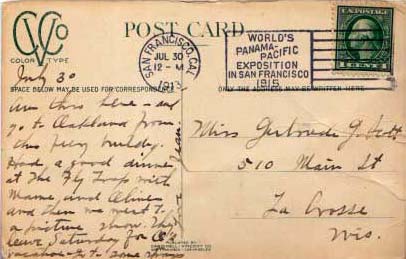 CVCo
COLOR TYPE
POST CARD
SAN FRANCISCO, CAL.
JUL 30
12 - M
1915
WORLD'S
PANAMA-PACIFIC
EXPOSITION
IN SAN FRANCISCO
1915
U.S. POSTAGE
1 CENT 1
July 30
SPACE BELOW MAY BE USED FOR CORRESPONDENCE
MAY BE WRITTEN HERE
Am thru here - and
go to Oakland from
this ferry building.
Had a good dinner
at The Fly Trap with
Mame, and Aline
and then we went to
a picture show. They
leave Saturday for
vacation
Miss Gertrude G.
510 Main St
La Crosse
Wis.
PUBLISHED BY